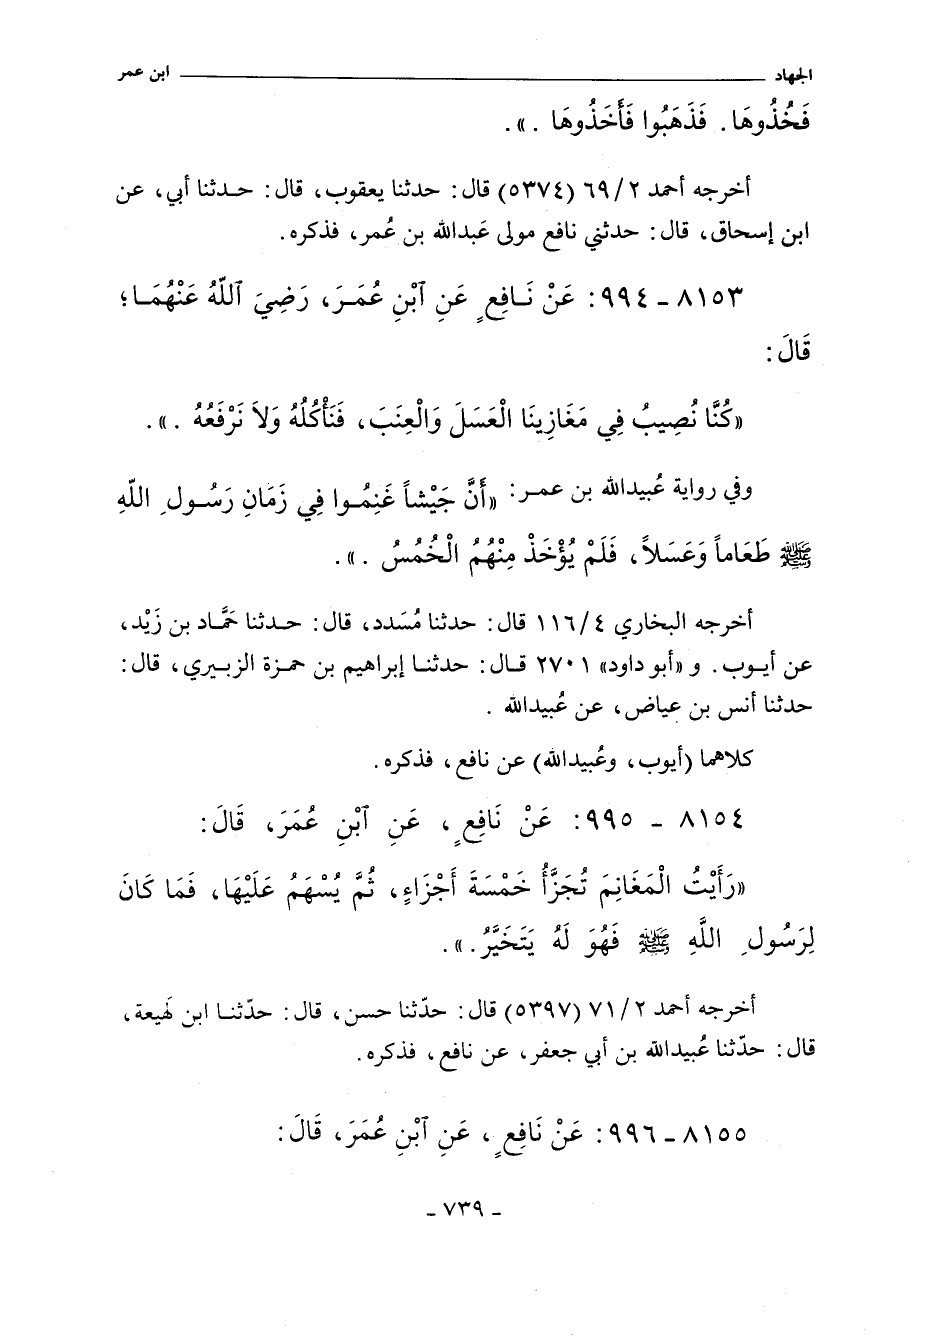 الجهاد ابن عمر
فَخُذُوهَا. فَذَهَبُوا فَأَخَذُوهَا .».
أخرجه أحمد ٦٩/٢ (٥٣٧٤) قال: حدثنا يعقوب، قال: حـدثنا أبي، عن
ابن إسحاق، قال: حدثني نافع مولى عَبدالله بن عُمر، فذكره.
٨١٥٣ - ٩٩٤: عَنْ نَـافِعٍ عَنِ ٱبْنِ عُمَـرَ، رَضِيَ ٱللّٰهُ عَنْهُمَـا؛
قَالَ:
«كُنَّا نُصِيبُ فِي مَغَازِينَا الْعَسَلَ وَالْعِنَبَ، فَنَأْكُلُهُ وَلاَ نَرْفَعُهُ .».
وفي رواية عُبيدالله بن عمـر: «أَنَّ جَيْشاً غَنِمُـوا فِي زَمَانِ رَسُـولِ اللّهِ
ﷺ طَعَاماً وَعَسَلاً، فَلَمْ يُؤْخَذْ مِنْهُمُ الْخُمُسُ .».
أخرجه البخاري ١١٦/٤ قال: حدثنا مُسَدد، قال: حـدثنا حَمَّاد بن زَيْد،
عن أيـوب. و «أبو داود» ٢٧٠١ قـال: حدثنـا إبراهيم بن حمزة الزبيري، قال:
حدثنا أنس بن عياض، عن عُبيدالله .
كلاهما (أيوب، وعُبيدالله) عن نافع، فذكره.
٨١٥٤ - ٩٩٥: عَنْ نَافِعٍ، عَنِ ٱبْنِ عُمَرَ، قَالَ:
«رَأَيْتُ الْمَغَانِمَ تُجَزَّأُ خَمْسَةَ أَجْزَاءٍ، ثُمَّ يُسْهَمُ عَلَيْهَا، فَمَا كَانَ
لِرَسُولِ اللَّهِ ﷺ فَهُوَ لَهُ يَتَخَيَّرُ.».
أخرجه أحمد ٧١/٢ (٥٣٩٧) قال: حدّثنا حسن، قال: حدّثنـا ابن لَهيعة،
قال: حدّثنا عُبيدالله بن أبي جعفر، عن نافع، فذكره.
٨١٥٥ - ٩٩٦: عَنْ نَافِعٍ، عَنِ ٱبْنِ عُمَرَ، قَالَ:
- ٧٣٩ -